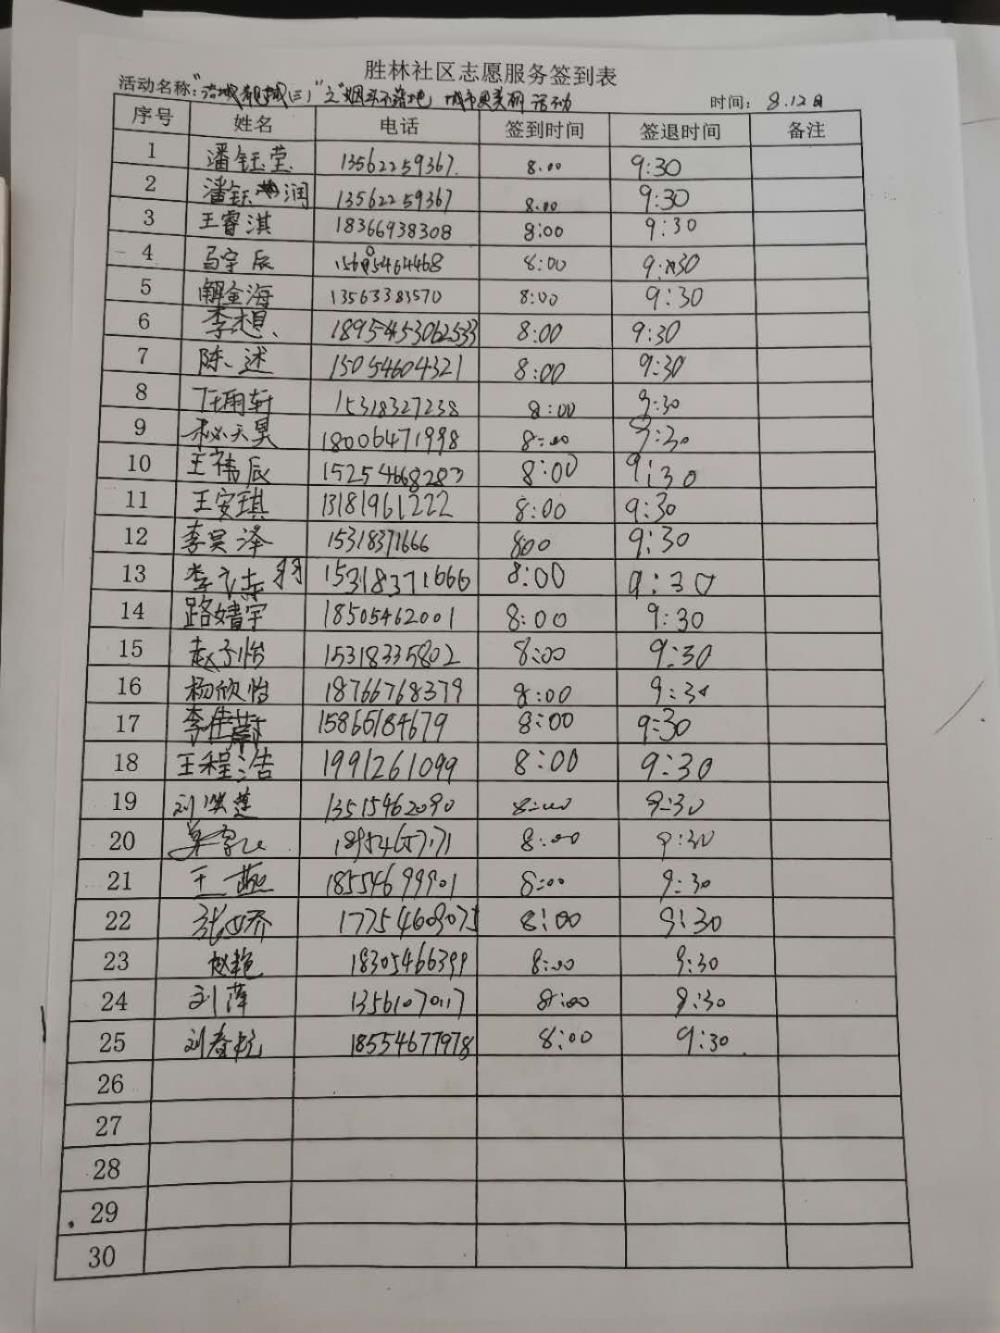 胜林社区志愿服务签到表
活动名称：" 之"烟头不落地 城市更美丽 活动 时间： 8.12日
序号 姓名 电话 签到时间 签退时间 备注
1 潘钰莹 13562259367 8.00 9:30
2 潘钰润 13562259367 8.00 9:30
3 王睿淇 18366938308 8:00 9:30
4 马宇辰 8:00 9:30
5 解金海 13563383570 8:00 9:30
6 李想 1895453062533 8:00 9:30
7 陈述 15054604321 8:00 9:30
8 任雨轩 15318327238 8:00 9:30
9 秘天昊 18006471998 8:00 9:30
10 王祎辰 15254668283 8:00 9:30
11 王安琪 13181961222 8:00 9:30
12 李昊泽 15318371666 800 9:30
13 李 15318371666 8:00 9:30
14 路婧宇 18505462001 8:00 9:30
15 赵子怡 15318335802 8:00 9:30
16 杨欣怡 18766768379 8:00 9:30
17 李佳蔚 15865184679 8:00 9:30
18 王程浩 1991261099 8:00 9:30
19 刘洪莲 13515462090 8:00 9:30
20 8:00 9:30
21 王燕 18554699901 8:00 9:30
22 张娇 17754609075 8:00 9:30
23 赵艳 18305466399 8:00 9:30
24 刘萍 13561070117 8:00 9:30
25 刘春 18554677978 8:00 9:30
26
27
28
29
30